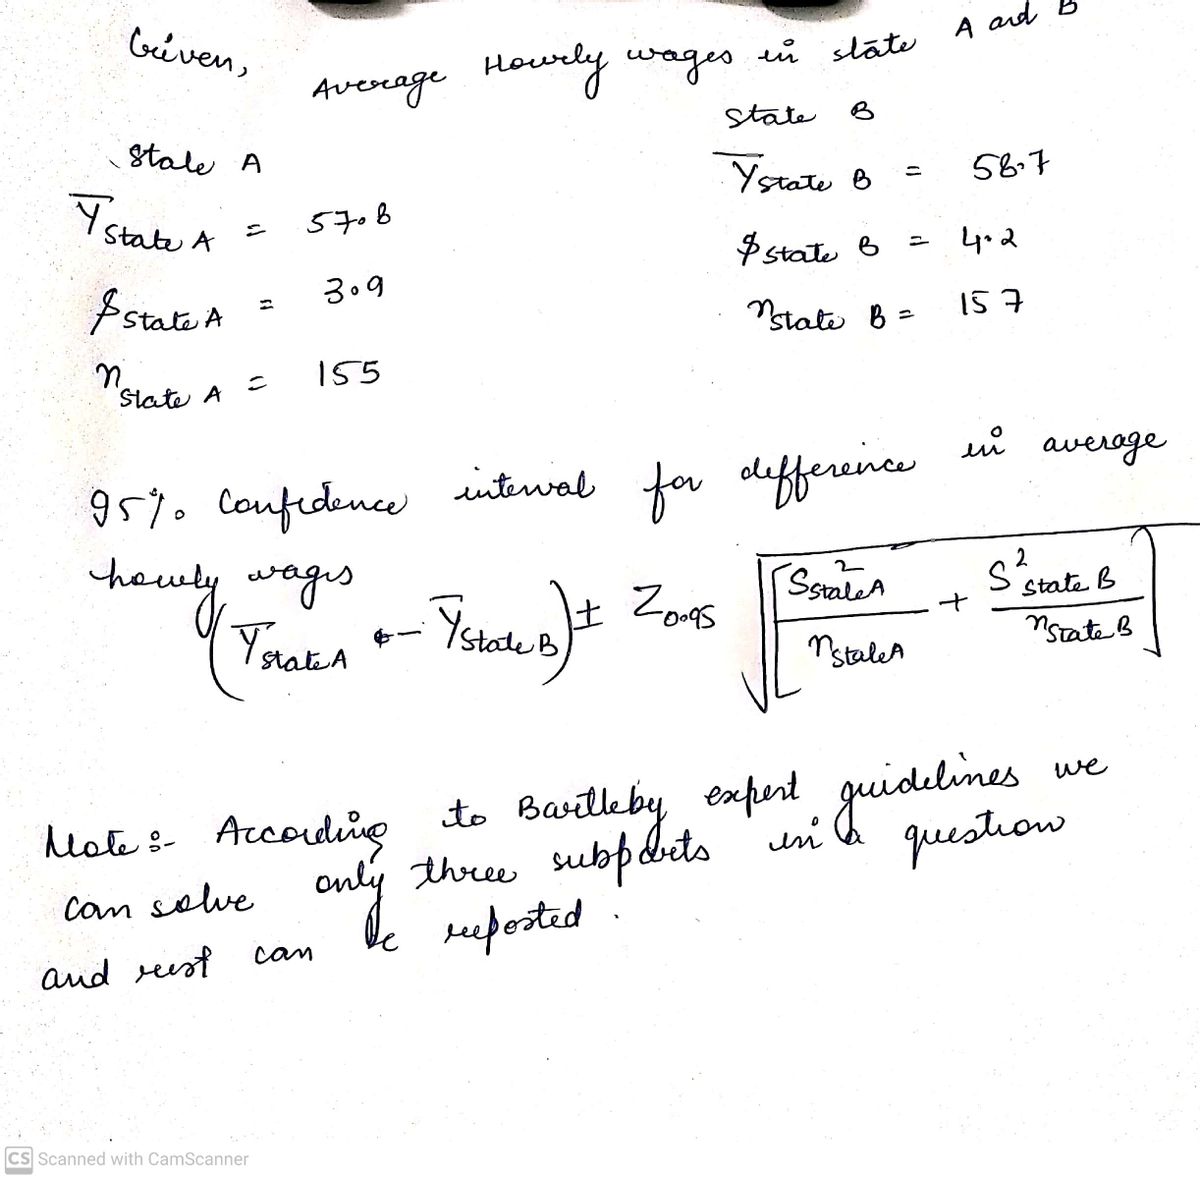 Given,
Average Hourly wages in state A and B
State A
State B
Ȳ State A = 57.8
Ȳ State B = 58.7
$ State A = 3.9
$ State B = 4.2
n State A = 155
n State B = 157
95% Confidence interval for difference in average
hourly wages
(Ȳ State A - Ȳ State B) ± Z0.95 √[S² State A / n State A + S² State B / n State B]
Note :- According to Bartleby expert guidelines we
can solve only three subparts in a question
and rest can be reposted.
CS Scanned with CamScanner